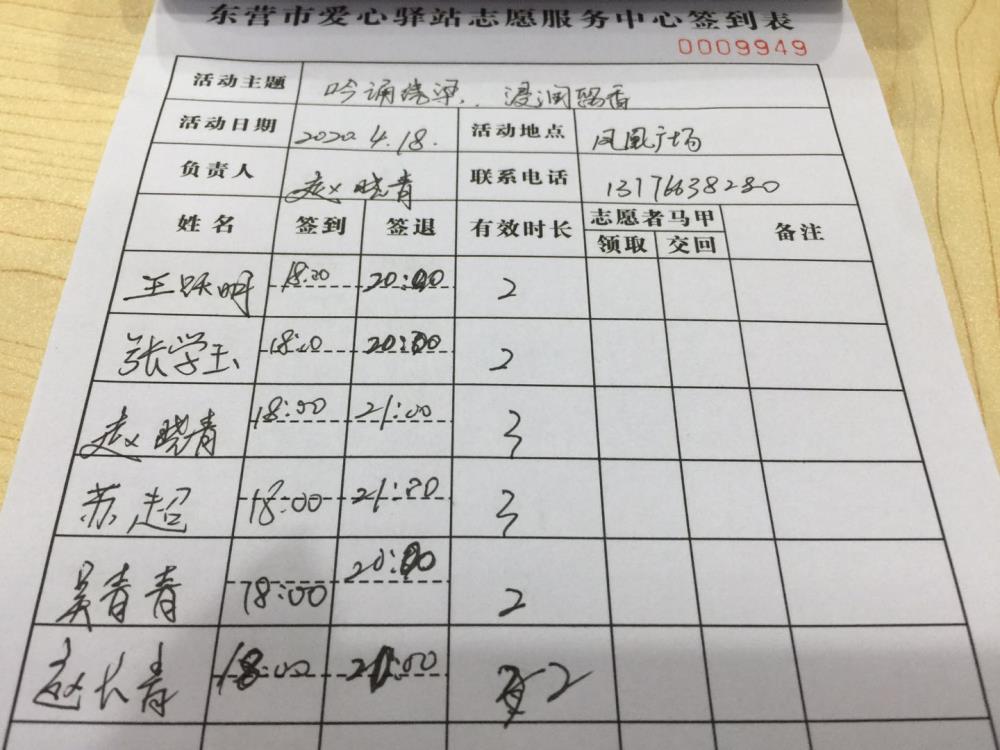 东营市爱心驿站志愿服务中心签到表
0009949
活动主题 吟诵绕梁..浸润馨香
活动日期 2020.4.18. 活动地点 凤凰广场
负责人 赵晓青 联系电话 13176638280
姓名 签到 签退 有效时长 志愿者马甲 备注
领取 交回
王跃明 18:00 20:00 2
张学玉 18:00 20:00 2
赵晓青 18:00 21:00 3
苏超 18:00 21:00 3
吴青青 18:00 20:00 2
赵长青 18:00 2